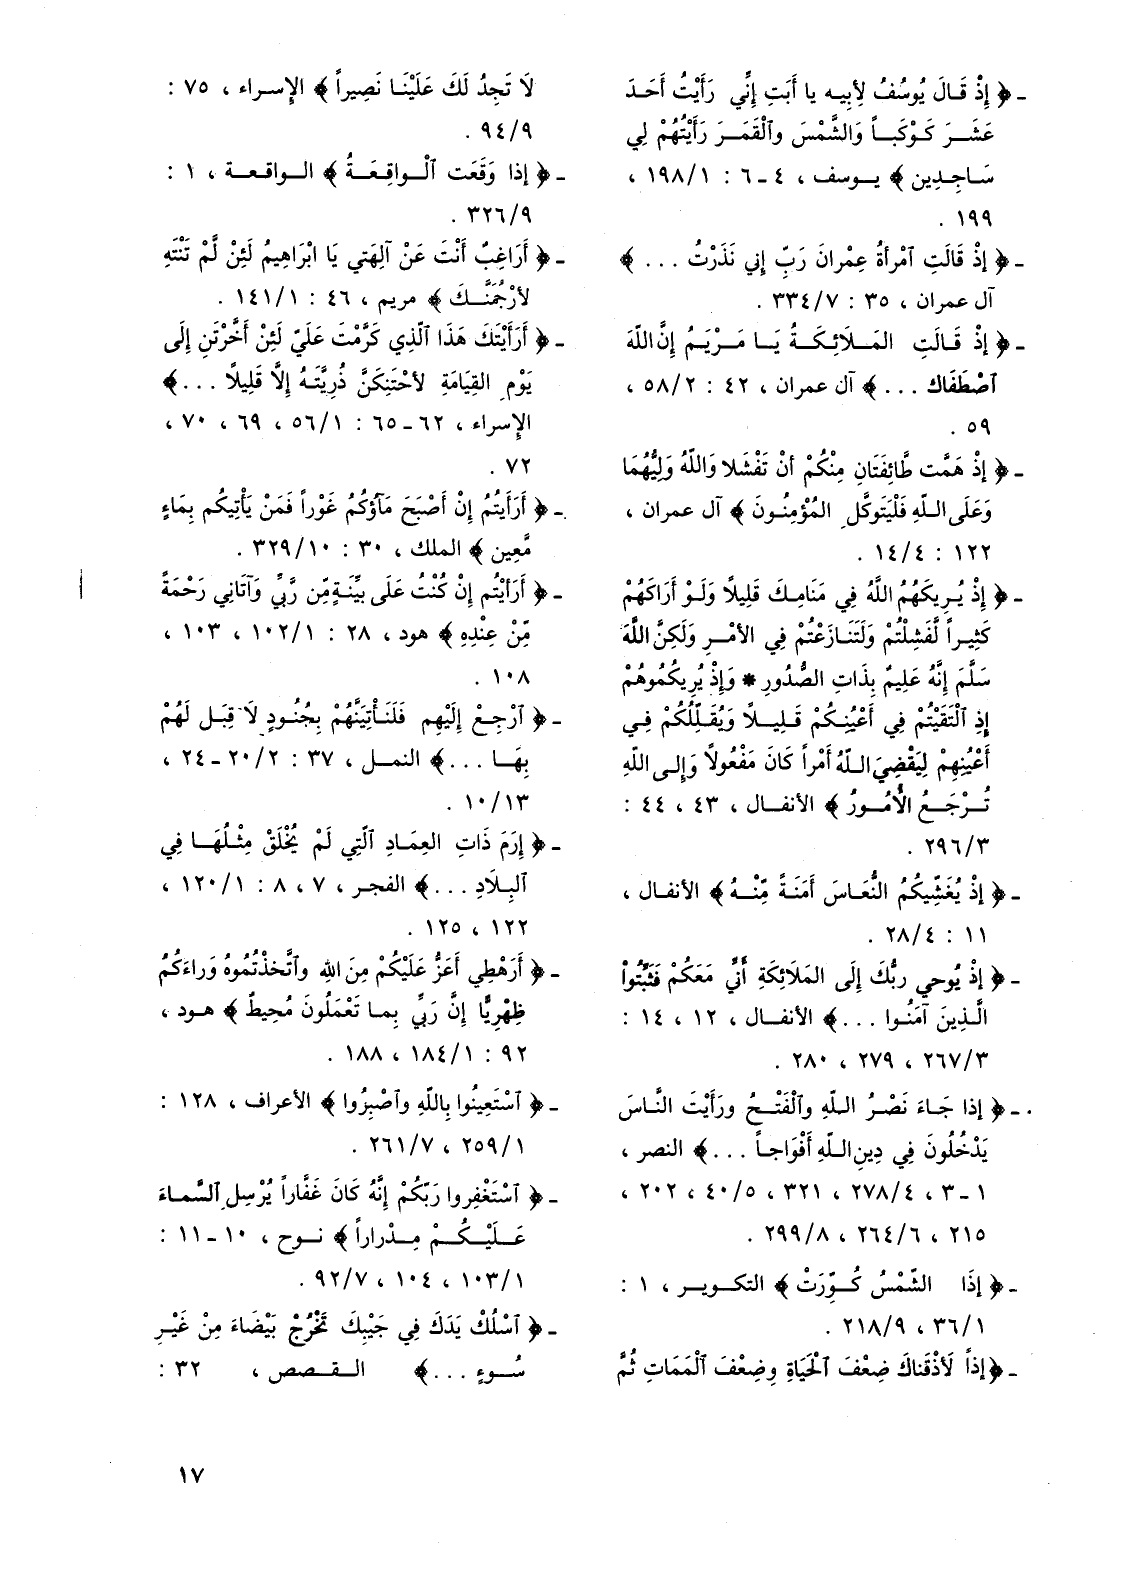 ـ ﴿ إِذْ قَـالَ يُوسُفُ لِأبِيـه يا أَبَتِ إِنِّي رَأَيْتُ أَحَـدَ
عَشَـرَ كَـوْكَبـاً وَالشَّمْسَ وآلْقَمَـرَ رَأَيْتُهُمْ لِي
سَـاجِـدِين ﴾ يـوسف ، ٤ ـ ٦ : ١/‏١٩٨ ،
١٩٩ .
ـ ﴿ إِذْ قَالَتِ آمْرأةُ عِمْرانَ رَبِّ إِني نَذَرْتُ ... ﴾
آل عمران ، ٣٥ : ٧/‏٣٣٤ .
ـ ﴿ إِذْ قَـالَتِ المَـلَائِكَـةُ يَـا مَـرْيَـمُ إِنَّ اللّهَ
آصْطَفَاك ... ﴾ آل عمران ، ٤٢ : ٢/‏٥٨ ،
٥٩ .
ـ ﴿ إِذْ هَمَّت طَّائِفَتَانِ مِنْكُمْ أنْ تَفْشَلا وَاللّهُ وَلِيُّهُمَا
وَعَلَى اللّهِ فَلْيَتوكَّلِ المُؤْمِنُـونَ ﴾ آل عمران ،
١٢٢ : ٤/‏١٤ .
ـ ﴿ إِذْ يُـرِيكَهُمُ اللَّهُ فِي مَنَامِـكَ قَلِيلاً وَلَـوْ أَرَاكَهُمْ
كَثِيـراً لَّفَشِلْتُمْ وَلَتَنَازَعْتُمْ فِي الأمْـرِ وَلَكِنَّ اللَّهَ
سَلَّمَ إِنَّهُ عَلِيمٌ بِذَاتِ الصُّدُورِ * وَإِذْ يُرِيكُمُوهُمْ
إِذِ آلْتَقَيْتُمْ فِي أَعْيُنِكُمْ قَـلِيـلاً وَيُقَـلِّلُكُمْ فِـي
أَعْيُنِهِمْ لِيَقْضِيَ اللّهُ أَمْراً كَانَ مَفْعُولاً وَإِلى اللّهِ
تُـرْجَـعُ الْأُمُـورُ ﴾ الأنفـال ، ٤٣ ، ٤٤ :
٣/‏٢٩٦ .
ـ ﴿ إِذْ يُغَشِّيكُمُ النُّعَاسَ أَمَنَةً مِّنْـهُ ﴾ الأنفـال ،
١١ : ٤/‏٢٨ .
ـ ﴿ إِذْ يُوحي ربُّكَ إِلَى المَلَائِكَةِ أَنِّي مَعَكُمْ فَثَبِّتُواْ
الَّـذِينَ آمَنُـوا ... ﴾ الأنفـال ، ١٢ ، ١٤ :
٣/‏٢٦٧ ، ٢٧٩ ، ٢٨٠ .
ـ ﴿ إذا جَـاءَ نَصْـرُ اللّهِ وآلْفَتْـحُ ورَأَيْتَ النَّـاسَ
يَدْخُلُونَ فِي دِينِ اللّهِ أَفْوَاجـاً ... ﴾ النصر ،
١ ـ ٣ ، ٤/‏٢٧٨ ، ٣٢١ ، ٥/‏٤٠ ، ٢٠٢ ،
٢١٥ ، ٦/‏٢٦٤ ، ٨/‏٢٩٩ .
ـ ﴿ إذَا الشَّمْسُ كُـوِّرَتْ ﴾ التكـويـر ، ١ :
١/‏٣٦ ، ٩/‏٢١٨ .
ـ ﴿ إذاً لَأَذْقناكَ ضِعْفَ آلْحَيَاةِ وضِعْفَ آلْمَمَاتِ ثُمَّ
لَا تَجِدُ لَكَ عَلَيْنَـا نَصِيراً ﴾ الإِسـراء ، ٧٥ :
٩/‏٩٤ .
ـ ﴿ إذا وَقَعَت آلْـواقِعَـةُ ﴾ الـواقعـة ، ١ :
٩/‏٣٢٦ .
ـ ﴿ أَرَاغِبٌ أَنْتَ عَنْ آلِهَتي يَا ابْرَاهِيمُ لَئِنْ لَّمْ تَنْتَهِ
لأرْجُمَنَّـكَ ﴾ مريم ، ٤٦ : ١/‏١٤١ .
ـ ﴿ أَرَأَيْتَكَ هَذَا آلَّذِي كَرَّمْتَ عَلَيّ لَئِنْ أَخَّرْتَنِ إِلَى
يَوْمِ القِيَامَةِ لأحْتَنِكَنَّ ذُرِيَّتَـهُ إِلَّا قَلِيلًا ... ﴾
الإِسراء ، ٦٢ ـ ٦٥ : ١/‏٥٦ ، ٦٩ ، ٧٠ ،
٧٢ .
ـ ﴿ أَرَأَيتُمُ إِنْ أَصْبَحَ مَآؤكُمُ غَوْراً فَمَنْ يَأْتِيكُم بِمَاءٍ
مَّعِين ﴾ الملك ، ٣٠ : ١٠/‏٣٢٩ .
ـ ﴿ أَرَأَيْتُم إِنْ كُنْتُ عَلَى بيِّنَـةٍ مِّن رَّبِّي وَآتَانِي رَحْمَةً
مِّنْ عِنْدِهِ ﴾ هود ، ٢٨ : ١/‏١٠٢ ، ١٠٣ ،
١٠٨ .
ـ ﴿ آرْجِـعْ إِلَيْهِم فَلَنَـأْتِيَنَّهُمْ بِجُنُـودٍ لَا قِبَـل لَهُمْ
بِهَـا ... ﴾ النمـل ، ٣٧ : ٢/‏٢٠ ـ ٢٤ ،
١٣/‏١٠ .
ـ ﴿ إِرَمَ ذَاتِ العِمَـادِ آلَّتِي لَمْ يُخْلَقْ مِثْلُهَـا فِي
آلبِلَادِ ... ﴾ الفجـر ، ٧ ، ٨ : ١/‏١٢٠ ،
١٢٢ ، ١٢٥ .
ـ ﴿ أَرَهْطِي أَعَزُّ عَلَيْكُمْ مِنَ اللهِ وآتَّخذْتُمُوهُ وَراءَكُمُ
ظِهْرِيًّا إِنَّ رَبِّي بِمـا تَعْمَلُونَ مُحِيطٌ ﴾ هـود ،
٩٢ : ١/‏١٨٤ ، ١٨٨ .
ـ ﴿ آسْتَعِينُوا بِاللّهِ وآصْبِرُوا ﴾ الأعراف ، ١٢٨ :
١/‏٢٥٩ ، ٧/‏٢٦١ .
ـ ﴿ آسْتَغْفِروا رَبَّكُمْ إِنَّهُ كَانَ غَفَّاراً يُرْسِلِ آلسَّماءَ
عَـلَيْـكُـمْ مِـدْراراً ﴾ نـوح ، ١٠ ـ ١١ :
١/‏١٠٣ ، ١٠٤ ، ٧/‏٩٢ .
ـ ﴿ آسْلُكْ يَدَكَ فِي جَيْبِكَ تَخْرُجْ بَيْضَاءَ مِنْ غَيْـرِ
سُـوءٍ ... ﴾ الـقـصص ، ٣٢ :
١٧